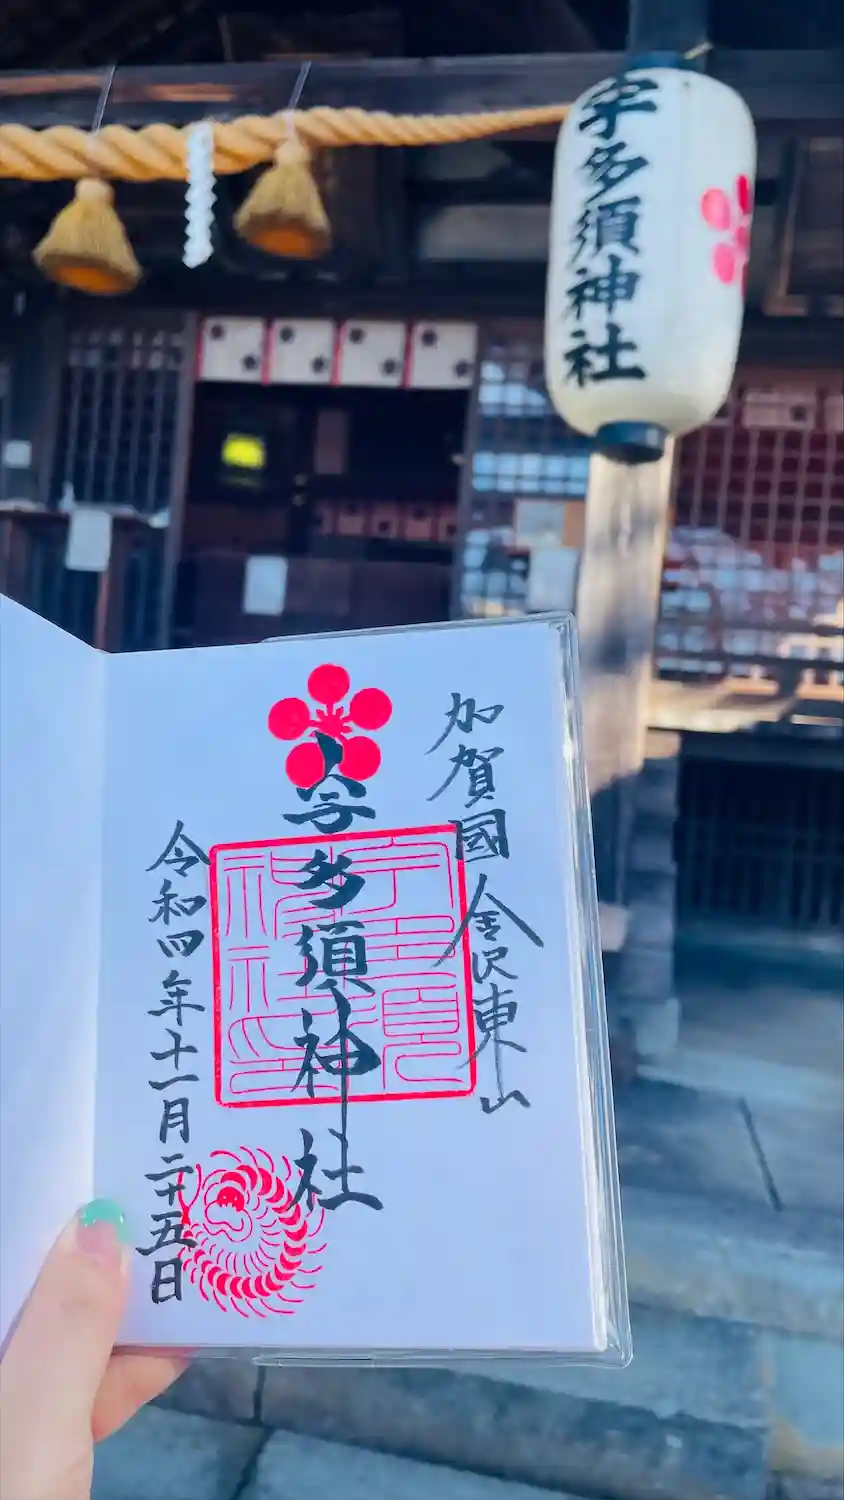 宇多須神社
加賀國金沢東山
宇多須神社
宇多須神社印
令和四年十一月二十五日